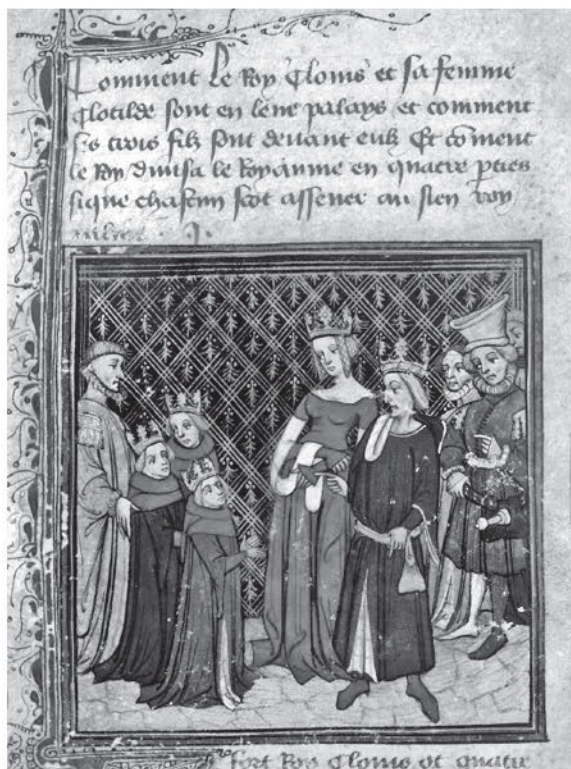 Comment Le Roy Clovis et sa femme
Clotilde sont en leur palays et comment
ses trois filz sont devant eulx Et coment
le Roy divisa le Royaume en quatre pties
sique chascun soit assener au sien roy
fort Roy Clovis ot quatre